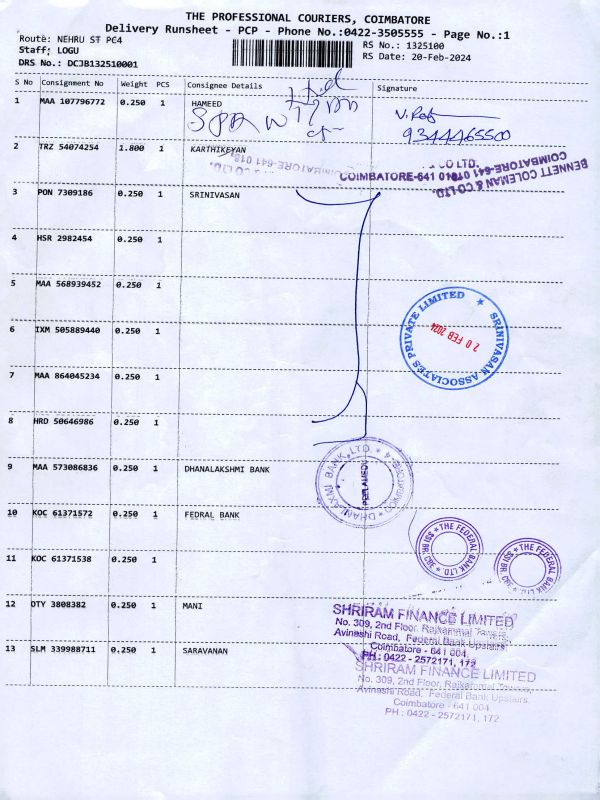 THE PROFESSIONAL COURIERS, COIMBATORE
Delivery Runsheet - PCP - Phone No.:0422-3505555 - Page No.:1
Route: NEHRU ST PC4
Staff: LOGU
DRS No.: DCJB132510001
RS No.: 1325100
RS Date: 20-Feb-2024
S No Consignment No Weight PCS Consignee Details Signature
1 MAA 107796772 0.250 1 HAMEED
9344465500
2 TRZ 54074254 1.800 1 KARTHIKEYAN
COIMBATORE-641 018
BENNETT COLEMAN & CO LTD.
COIMBATORE-641 018
3 PON 7309186 0.250 1 SRINIVASAN
4 HSR 2982454 0.250 1
5 MAA 568939452 0.250 1
SRINIVASAN ASSOCIATES PRIVATE LIMITED
20 FEB 2024
6 IXM 505889440 0.250 1
7 MAA 864045234 0.250 1
8 HRD 50646986 0.250 1
9 MAA 573086836 0.250 1 DHANALAKSHMI BANK
DHANLAXMI BANK LTD.
10 KOC 61371572 0.250 1 FEDRAL BANK
THE FEDERAL BANK LTD.
THE FEDERAL BANK LTD.
11 KOC 61371538 0.250 1
12 OTY 3808382 0.250 1 MANI
SHRIRAM FINANCE LIMITED
No. 309, 2nd Floor, Rajkammal Towers,
Avinashi Road, Federal Bank Upstairs,
Coimbatore - 641 004.
PH : 0422 - 2572171, 172
13 SLM 339988711 0.250 1 SARAVANAN
SHRIRAM FINANCE LIMITED
No. 309, 2nd Floor, Rajkammal Towers,
Avinashi Road, Federal Bank Upstairs,
Coimbatore - 641 004
PH : 0422 - 2572171, 172